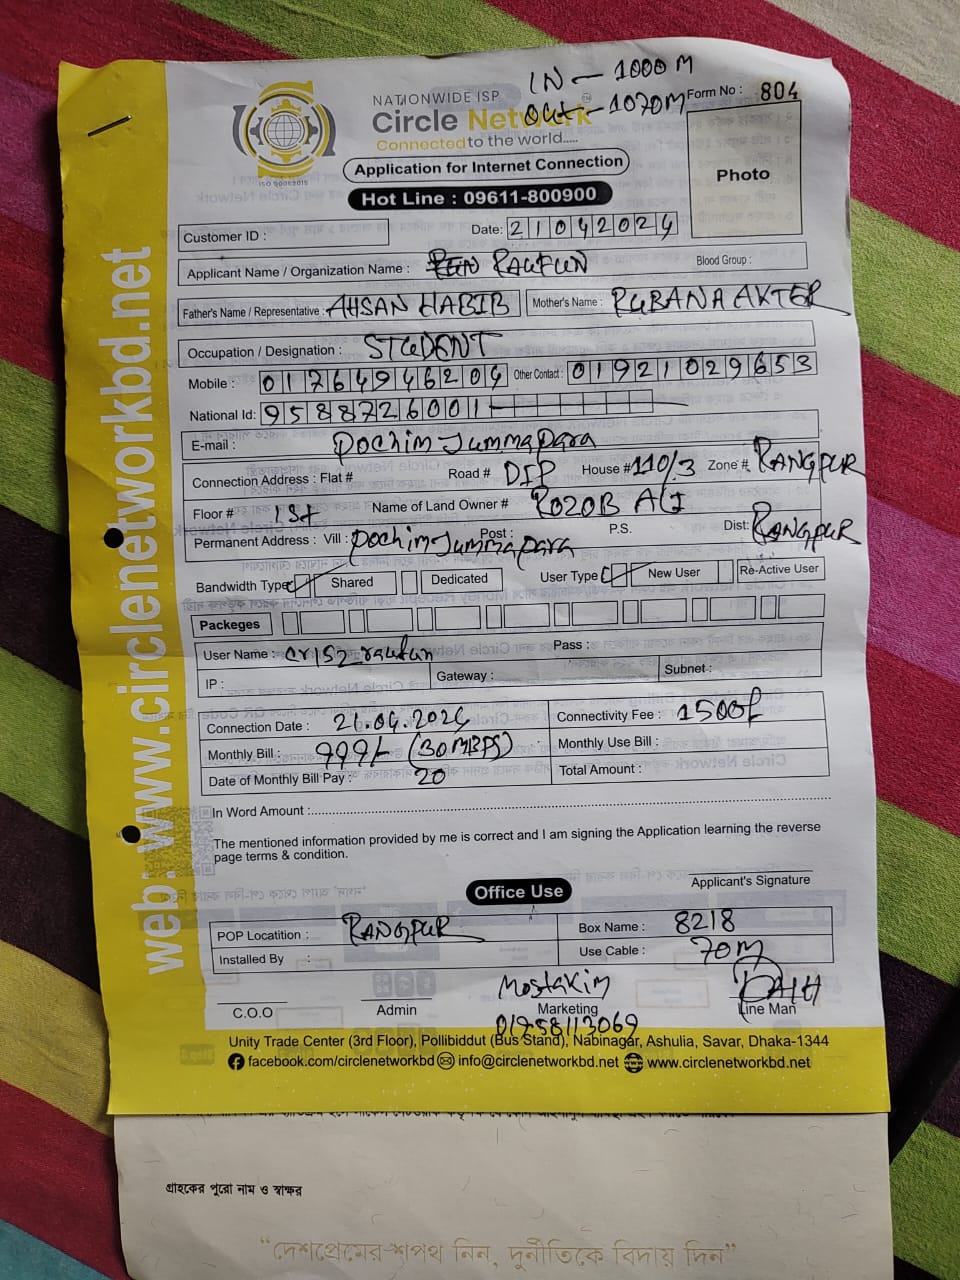 IN - 1000M
Out - 1070M
NATIONWIDE ISP
Form No : 804
Circle Network
Connected to the world.....
ISO 9001:2015
Application for Internet Connection
Photo
Hot Line : 09611-800900
Customer ID :
Date: 21042024
Applicant Name / Organization Name : RAUFUN
Blood Group :
Father's Name / Representative : AHSAN HABIB
Mother's Name : RUBANA AKTER
Occupation / Designation : STUDENT
Mobile : 01764946204
Other Contact : 01921029653
National Id: 9588726001
E-mail :
Pochim Jummapara
Connection Address : Flat #
Road # DIP
House # 110/3
Zone # RANGPUR
Floor # 1st
Name of Land Owner # ROZOB ALI
Permanent Address : Vill : Pochim Jummapara
Post :
P.S.
Dist: RANGPUR
Bandwidth Type
Shared
Dedicated
User Type
New User
Re-Active User
Packeges
User Name : cr152raufun
Pass :
IP :
Gateway :
Subnet :
Connection Date : 21.04.2024
Connectivity Fee : 1500/
Monthly Bill : 999/ (30MBPS)
Monthly Use Bill :
Date of Monthly Bill Pay : 20
Total Amount :
In Word Amount :
The mentioned information provided by me is correct and I am signing the Application learning the reverse
page terms & condition.
Applicant's Signature
Office Use
POP Locatition : RANGPUR
Box Name : 8218
Installed By :
Use Cable : 70M
Mostakim
C.O.O
Admin
Marketing
Line Man
01958113069
Unity Trade Center (3rd Floor), Pollibiddut (Bus Stand), Nabinagar, Ashulia, Savar, Dhaka-1344
facebook.com/circlenetworkbd info@circlenetworkbd.net www.circlenetworkbd.net
web: www.circlenetworkbd.net
গ্রাহকের পুরো নাম ও স্বাক্ষর
“দেশপ্রেমের শপথ নিন, দুর্নীতিকে বিদায় দিন”